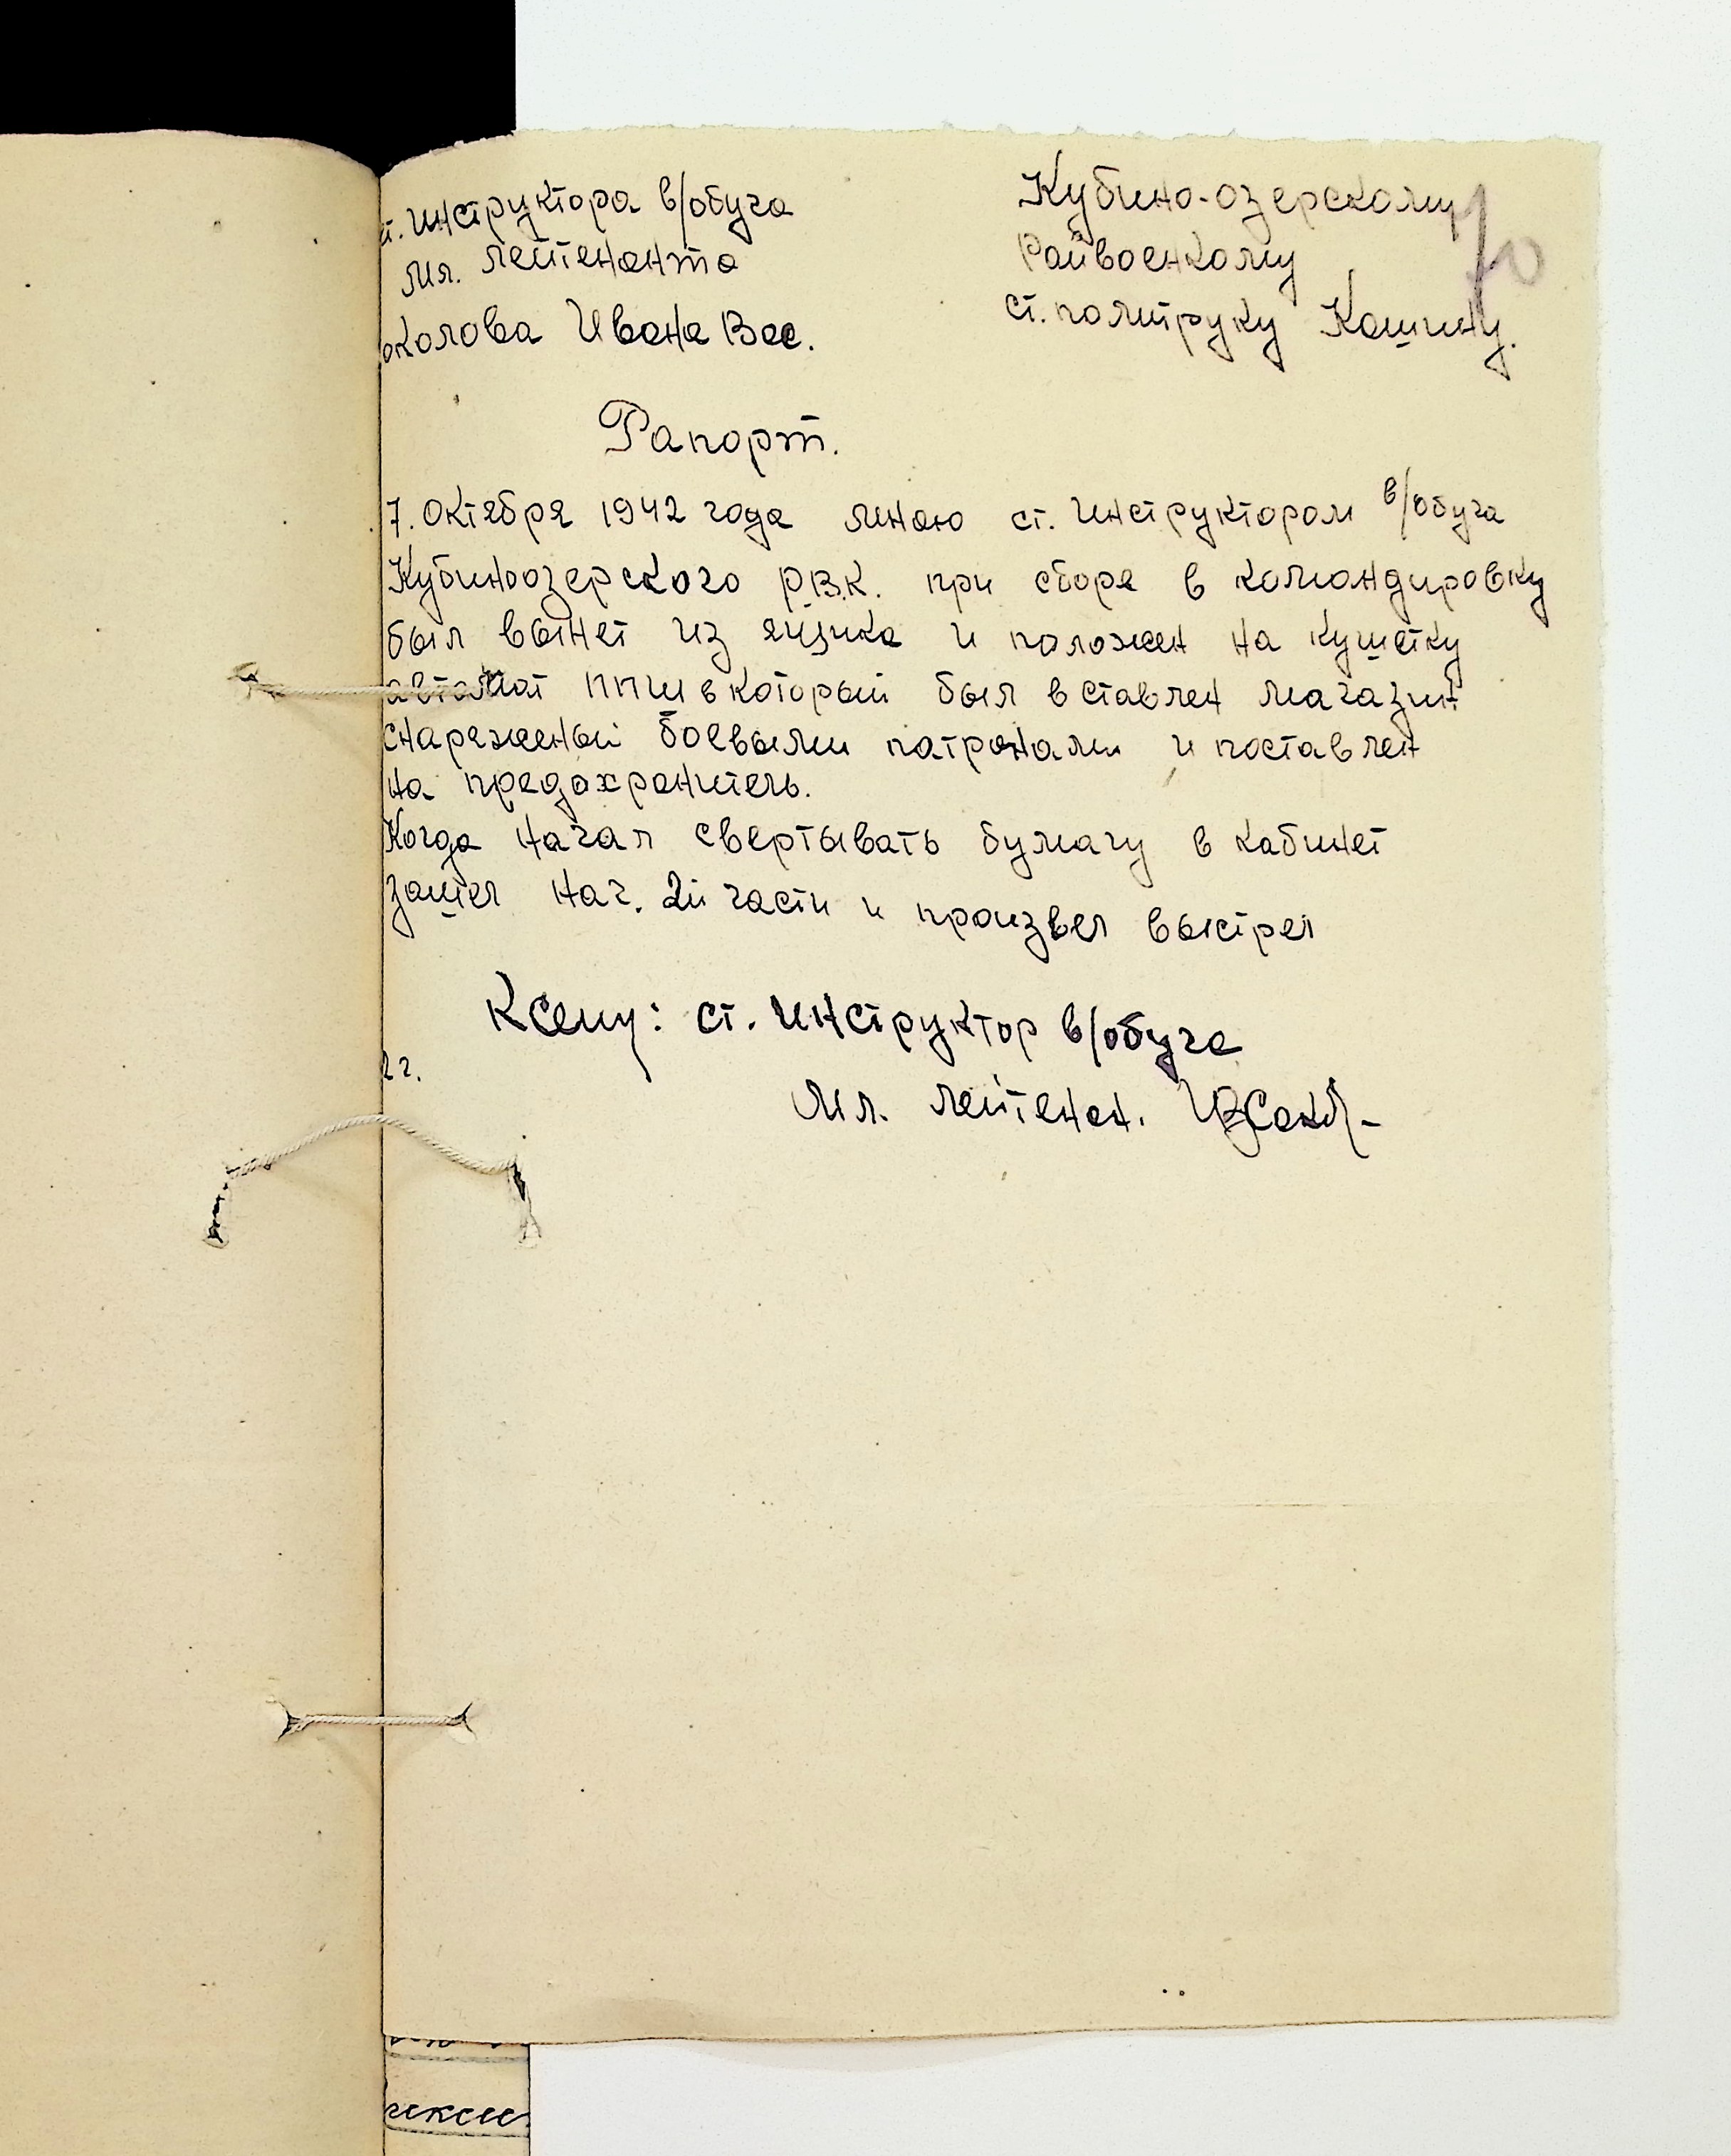 т. инструктора в/обуча
мл. лейтенанта
околова Ивана Вас.
Кубино-озерскому
Райвоенкому
ст. политруку Кашину.
70
Рапорт.
7. октября 1942 года мною ст. инструктором в/обуча
Кубиноозерского Р.В.К. при сборе в командировку
был вынет из ящика и положен на кушетку
автомат ППШ в который был вставлен магазин
снаряженый боевыми патронами и поставлен
на предохранитель.
Когда начал свертывать бумагу в кабинет
зашел нач. 2й части и произвел выстрел
К сему: ст. инструктор в/обуча
2 г.
Мл. лейтенан.